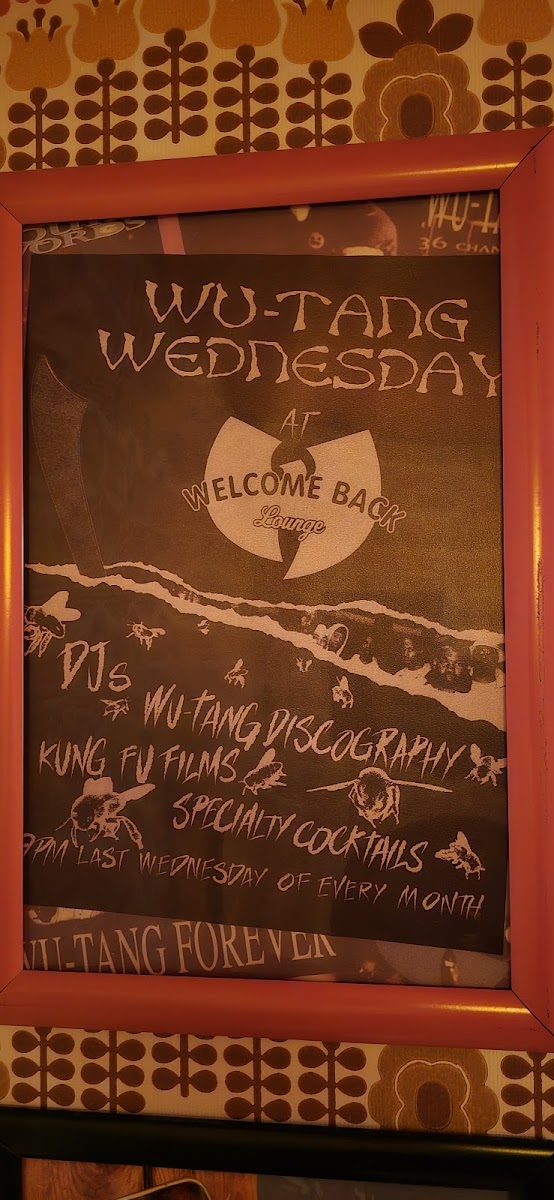 WU-T
36 CHAN
WU-TANG
WEDNESDAY
AT
WELCOME BACK
Lounge
DJs
WU-TANG DISCOGRAPHY
KUNG FU FILMS
SPECIALTY COCKTAILS
PM LAST WEDNESDAY OF EVERY MONTH
WU-TANG FOREVER